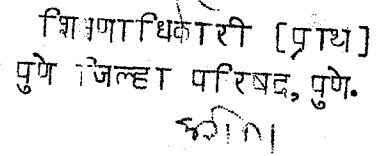 शिक्षणाधिकारी [प्राथ]
पुणे जिल्हा परिषद, पुणे.